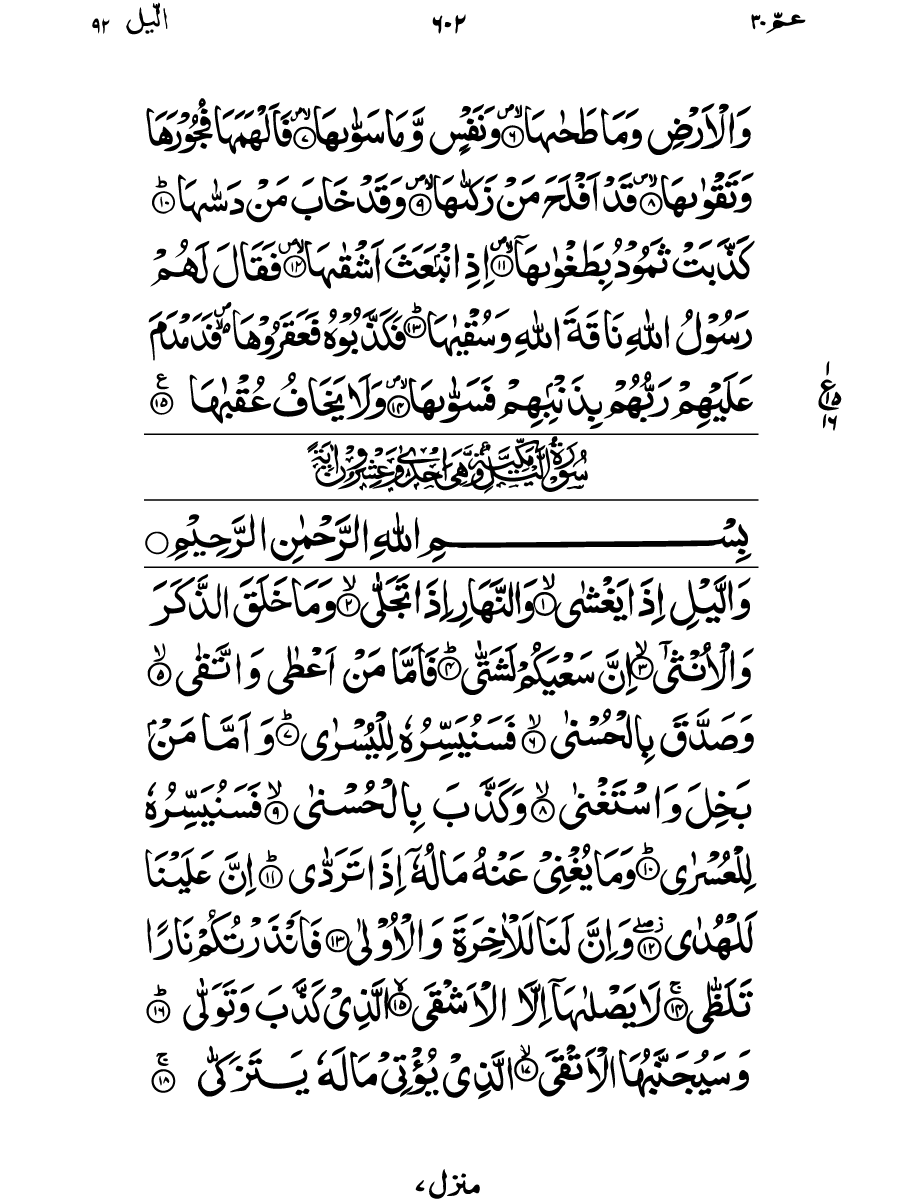 عمّ ٣٠ ٦٠٢ الّيل ٩٢
وَالْاَرْضِ وَمَا طَحٰىهَا ۪ۙ‏﴿۶﴾ وَنَفْسٍ وَّمَا سَوّٰىهَا ۪ۙ‏﴿۷﴾ فَاَلْهَمَهَا فُجُوْرَهَا
وَتَقْوٰىهَا ۪ۙ‏﴿۸﴾ قَدْ اَفْلَحَ مَنْ زَكّٰىهَا ۪ۙ‏﴿۹﴾ وَقَدْ خَابَ مَنْ دَسّٰىهَا ؕ‏﴿۱۰﴾
كَذَّبَتْ ثَمُوْدُ بِطَغْوٰىهَاۤ ۪ۙ‏﴿۱۱﴾ اِذِ انْۢبَعَثَ اَشْقٰىهَا ۪ۙ‏﴿۱۲﴾ فَقَالَ لَهُمْ
رَسُوْلُ اللّٰهِ نَاقَةَ اللّٰهِ وَسُقْيٰهَا ؕ‏﴿۱۳﴾ فَكَذَّبُوْهُ فَعَقَرُوْهَا ۪ۙ فَدَمْدَمَ
عَلَيْهِمْ رَبُّهُمْ بِذَنْۢبِهِمْ فَسَوّٰىهَا ۪ۙ‏﴿۱۴﴾ وَلَا يَخَافُ عُقْبٰهَا ‏﴿۱۵﴾ ع
١ ع ١٥ ١٦
سُوْرَةُ الَّيْلِ مَكِّيَّةٌ وَّهِيَ اِحْدٰى وَعِشْرُوْنَ اٰيَةً
بِسْمِ اللّٰهِ الرَّحْمٰنِ الرَّحِيْمِ ○
وَالَّيْلِ اِذَا يَغْشٰى ۙ‏﴿۱﴾ وَالنَّهَارِ اِذَا تَجَلّٰى ۙ‏﴿۲﴾ وَمَا خَلَقَ الذَّكَرَ
وَالْاُنْثٰٓى ۙ‏﴿۳﴾ اِنَّ سَعْيَكُمْ لَشَتّٰى ؕ‏﴿۴﴾ فَاَمَّا مَنْ اَعْطٰى وَاتَّقٰى ۙ‏﴿۵﴾
وَصَدَّقَ بِالْحُسْنٰى ۙ‏﴿۶﴾ فَسَنُيَسِّرُهٗ لِلْيُسْرٰى ؕ‏﴿۷﴾ وَاَمَّا مَنْۢ
بَخِلَ وَاسْتَغْنٰى ۙ‏﴿۸﴾ وَكَذَّبَ بِالْحُسْنٰى ۙ‏﴿۹﴾ فَسَنُيَسِّرُهٗ
لِلْعُسْرٰى ؕ‏﴿۱۰﴾ وَمَا يُغْنِيْ عَنْهُ مَالُهٗۤ اِذَا تَرَدّٰى ؕ‏﴿۱۱﴾ اِنَّ عَلَيْنَا
لَلْهُدٰى ۖ ؗ‏﴿۱۲﴾ وَاِنَّ لَنَا لَلْاٰخِرَةَ وَالْاُوْلٰى ‏﴿۱۳﴾ فَاَنْذَرْتُكُمْ نَارًا
تَلَظّٰى ۚ‏﴿۱۴﴾ لَا يَصْلٰىهَاۤ اِلَّا الْاَشْقَى ۙ‏﴿۱۵﴾ الَّذِيْ كَذَّبَ وَتَوَلّٰى ؕ‏﴿۱۶﴾
وَسَيُجَنَّبُهَا الْاَتْقَى ۙ‏﴿۱۷﴾ الَّذِيْ يُؤْتِيْ مَالَهٗ يَتَزَكّٰى ۚ‏﴿۱۸﴾
منزل ٧